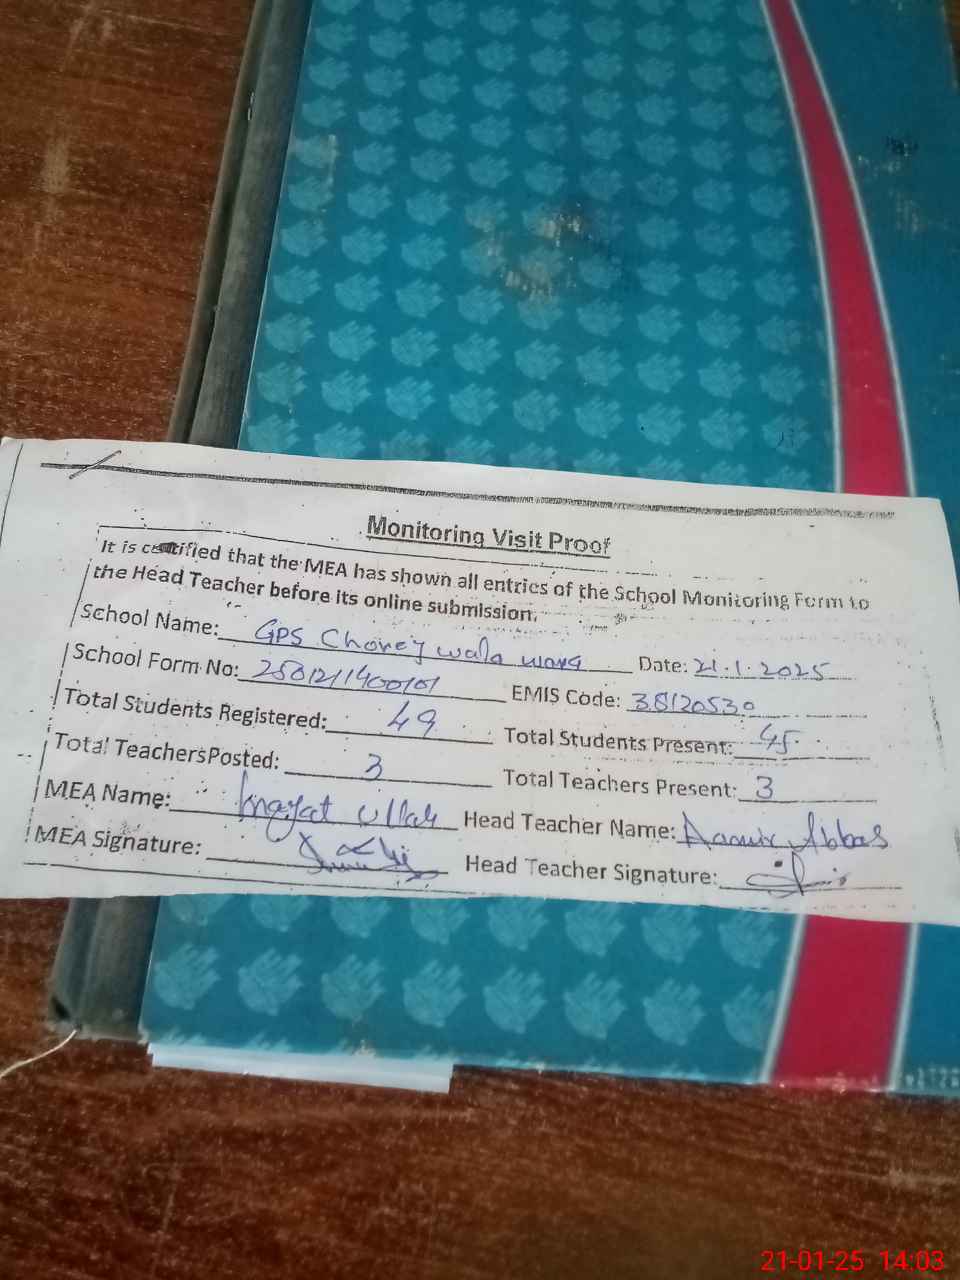 Monitoring Visit Proof
It is certified that the MEA has shown all entries of the School Monitoring Form to
the Head Teacher before its online submission.
School Name: GPS Chovey wala wara Date: 21.1.2025
School Form No: EMIS Code: 38120530
Total Students Registered: 49 Total Students Present: 45
Total Teachers Posted: 3 Total Teachers Present: 3
MEA Name: Inayat Ullah Head Teacher Name: Aamir Abbas
MEA Signature: Head Teacher Signature:
21-01-25 14:03